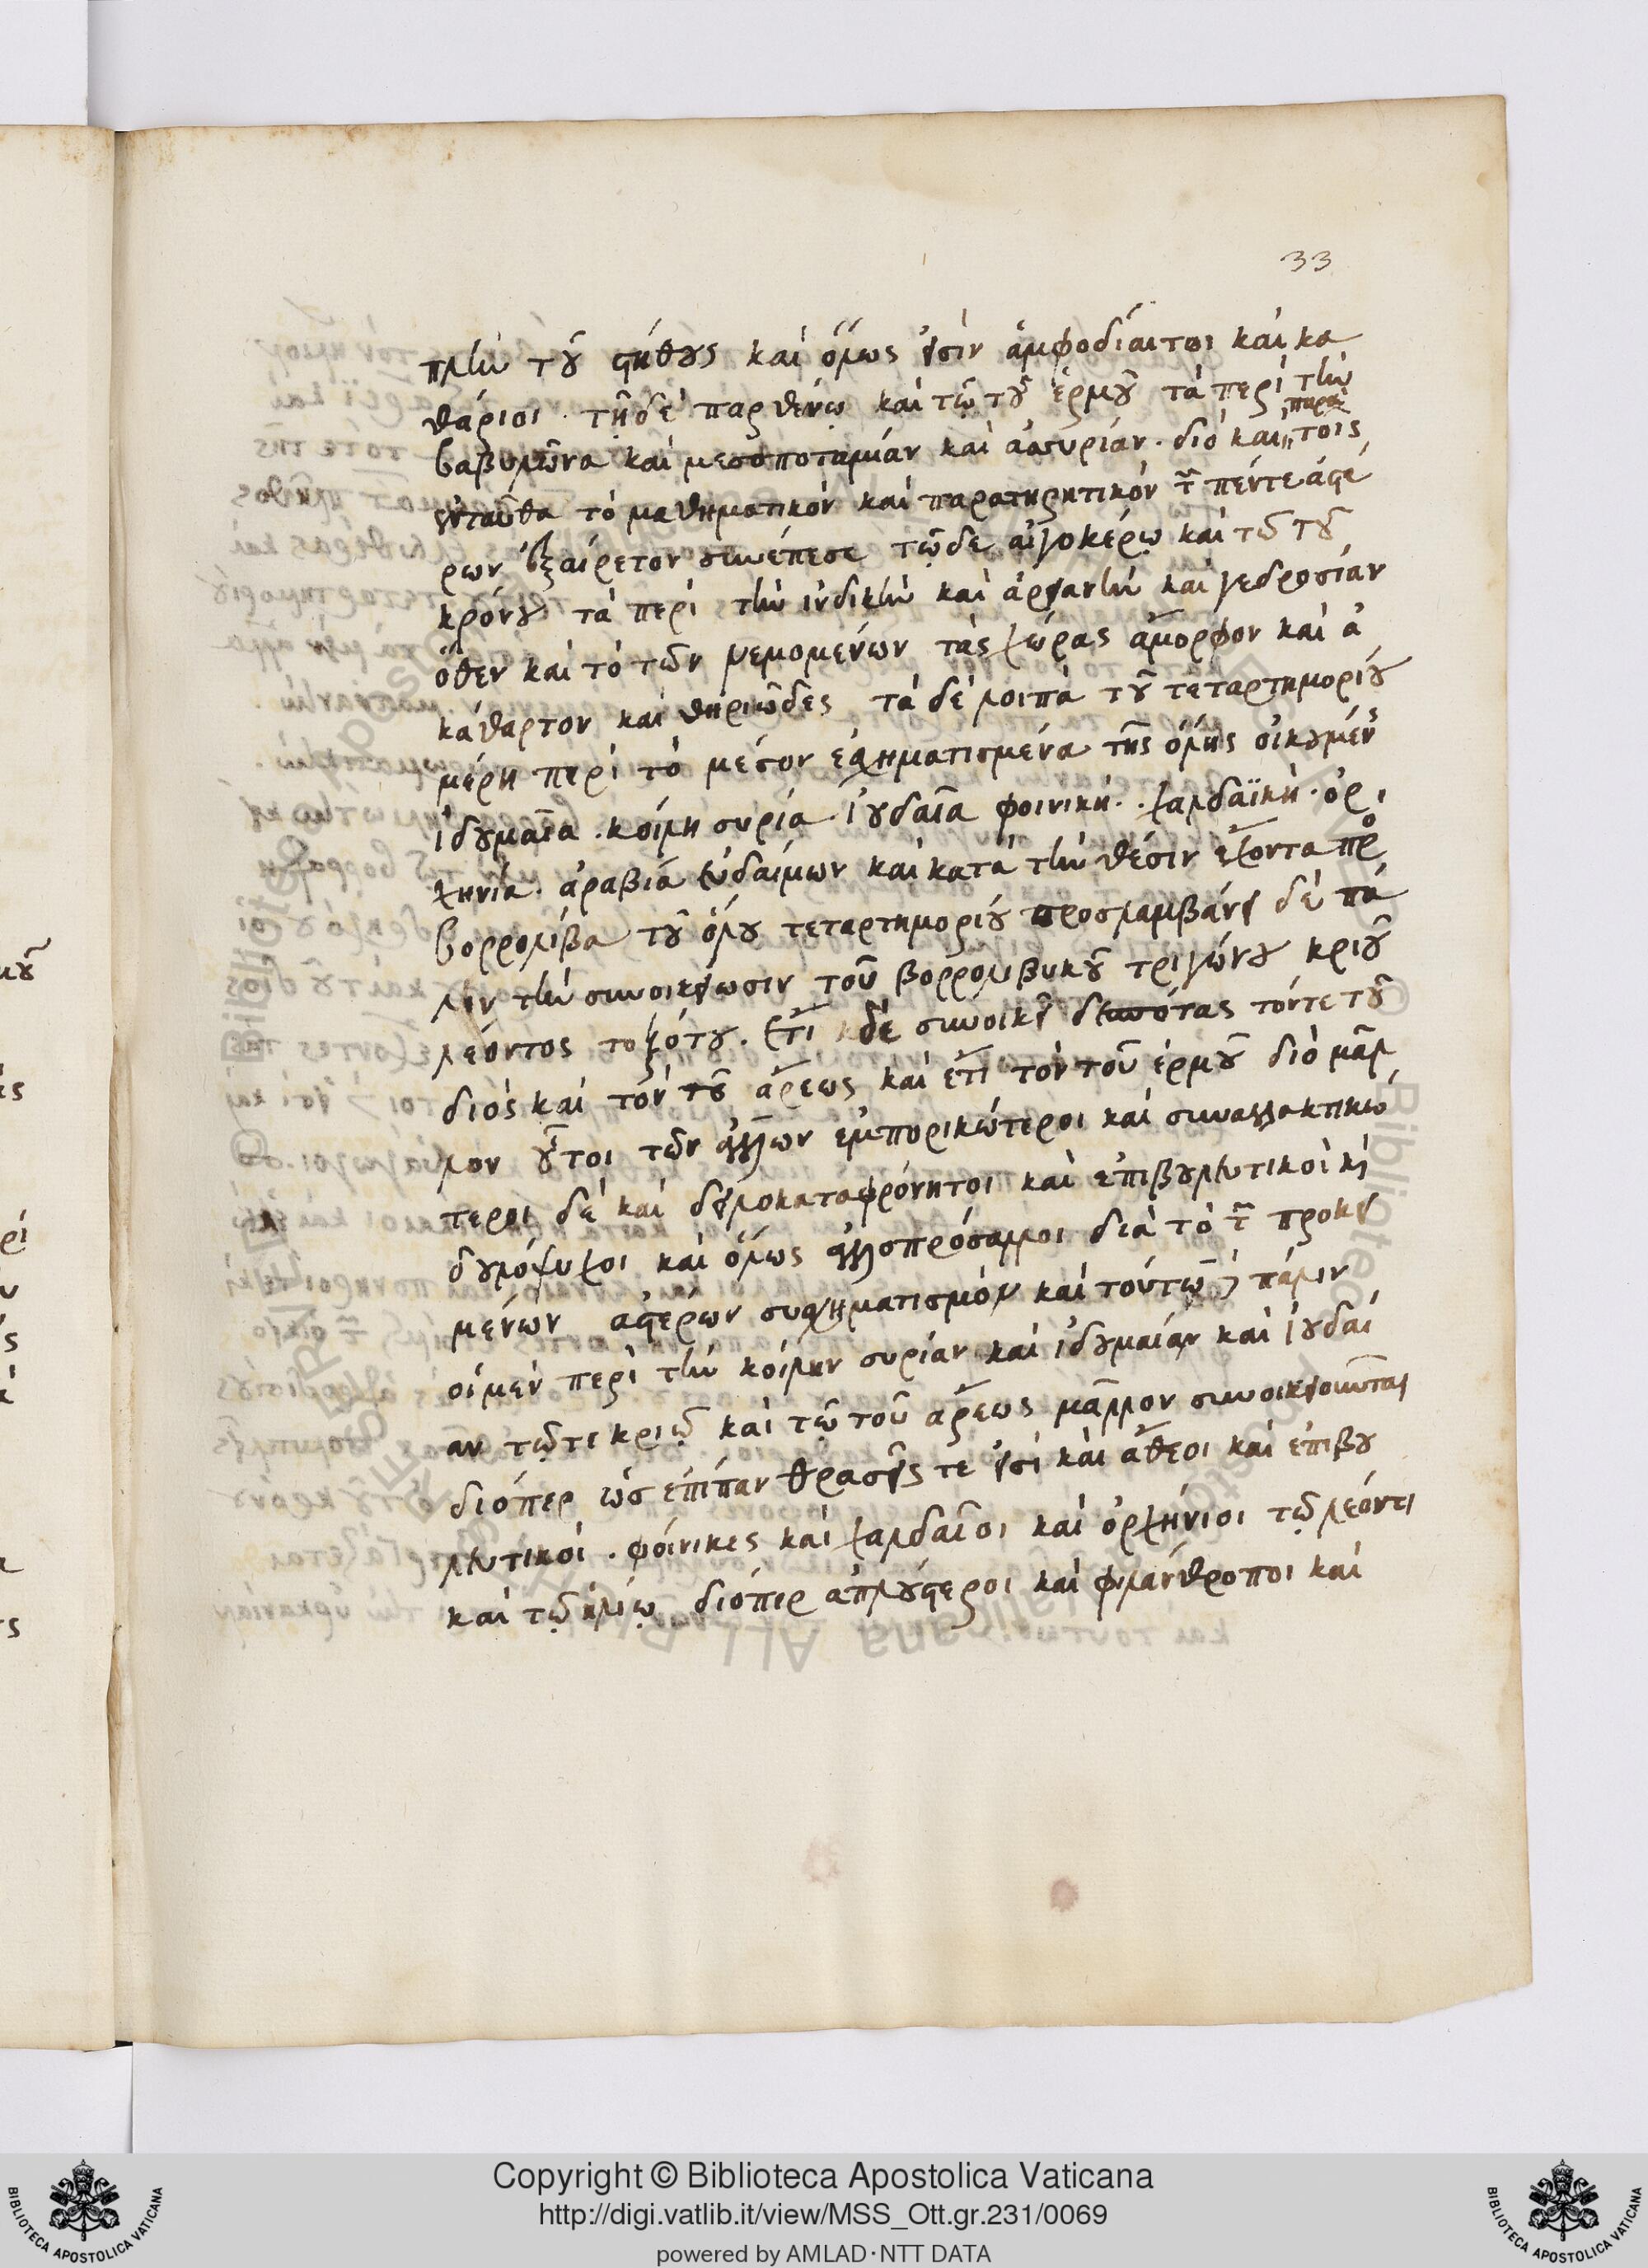 33
πλὴν τοῦ στήθους καὶ ὅλως εἰσὶν ἁμφοδίαιτοι καὶ κα
θάριοι. τῇ δὲ παρθένῳ καὶ τῷ τοῦ ἑρμοῦ τὰ περὶ τὴν
βαβυλῶνα καὶ μεσοποταμίαν καὶ ἀσυρίαν. διὸ καὶ παρὰ τοῖς
ἐνταῦθα τὸ μαθηματικὸν καὶ παρατηρητικὸν τ̃ πέντε ἀστέ
ρων ἐξαίρετον συνέπεσε τῷδε αἰγοκέρῳ καὶ τῶ τοῦ
κρόνου τὰ περὶ τὴν ἰνδικὴν καὶ ἀρειανὴν καὶ γεδροσίαν
ὅθεν καὶ τὸ τῶν νεμομένων τὰς χώρας ἄμορφον καὶ ἀ
κάθαρτον καὶ θηριῶδες τὰ δὲ λοιπὰ τοῦ τεταρτημορίου
μέρη περὶ τὸ μέσον ἐσχηματισμένα τῆς ὅλης οἰκουμένς
ἰδουμαῖα. κοίλη συρία. ἰουδαῖα φοινική. χαλδαϊκή. ὀρ
χηνία. ἀραβία εὐδαίμων καὶ κατὰ τὴν θέσιν ἔχοντα πρ
βορρολίβα τοῦ ὅλου τεταρτημορίου προσλαμβάνει δὲ πά
λιν τὴν συνοικείωσιν τοῦ βορρολιβυκοῦ τριγώνου κριοῦ
λέοντος τοξότου. ἔτι δὲ συνοικεῖ δεσπότας τόντε τοῦ
διὸς καὶ τὸν τοῦ ἄρεως καὶ ἔτι τὸν τοῦ ἑρμοῦ διὸ μᾶλ
λον οὗτοι τῶν ἄλλων ἐμπορικώτεροι καὶ συναλλακτικώ
τεροι δὲ καὶ δειλοκαταφρόνητοι καὶ ἐπιβουλευτικοὶ κὶ
δουλόψυχοι καὶ ὅλως ἀλλοπρόσαλλοι διὰ τὸ τ̃ προκει
μένων ἀστέρων συσχηματισμὸν καὶ τούτω πάλιν
οἱ μὲν περὶ τὴν κοίλην συρίαν καὶ ἰδουμαίαν καὶ ἰουδαί
αν τῷτε κριῷ καὶ τῷ τοῦ ἄρεως μᾶλλον συνοικειοῦνται
διόπερ ὡς ἐπίπαν θρασεῖς τε εἰσὶ καὶ ἄθεοι καὶ ἐπιβου
λευτικοί. φοίνικες καὶ χαλδαῖοι καὶ ὀρχήνιοι τῷ λέοντι
καὶ τῷ ἡλίῳ διόπερ ἁπλούστεροι καὶ φιλάνθροποι καὶ
© Biblioteca Apostolica Vaticana ALL RIGHTS RESERVED
Copyright © Biblioteca Apostolica Vaticana
http://digi.vatlib.it/view/MSS_Ott.gr.231/0069
powered by AMLAD·NTT DATA
BIBLIOTECA APOSTOLICA VATICANA
BIBLIOTECA APOSTOLICA VATICANA